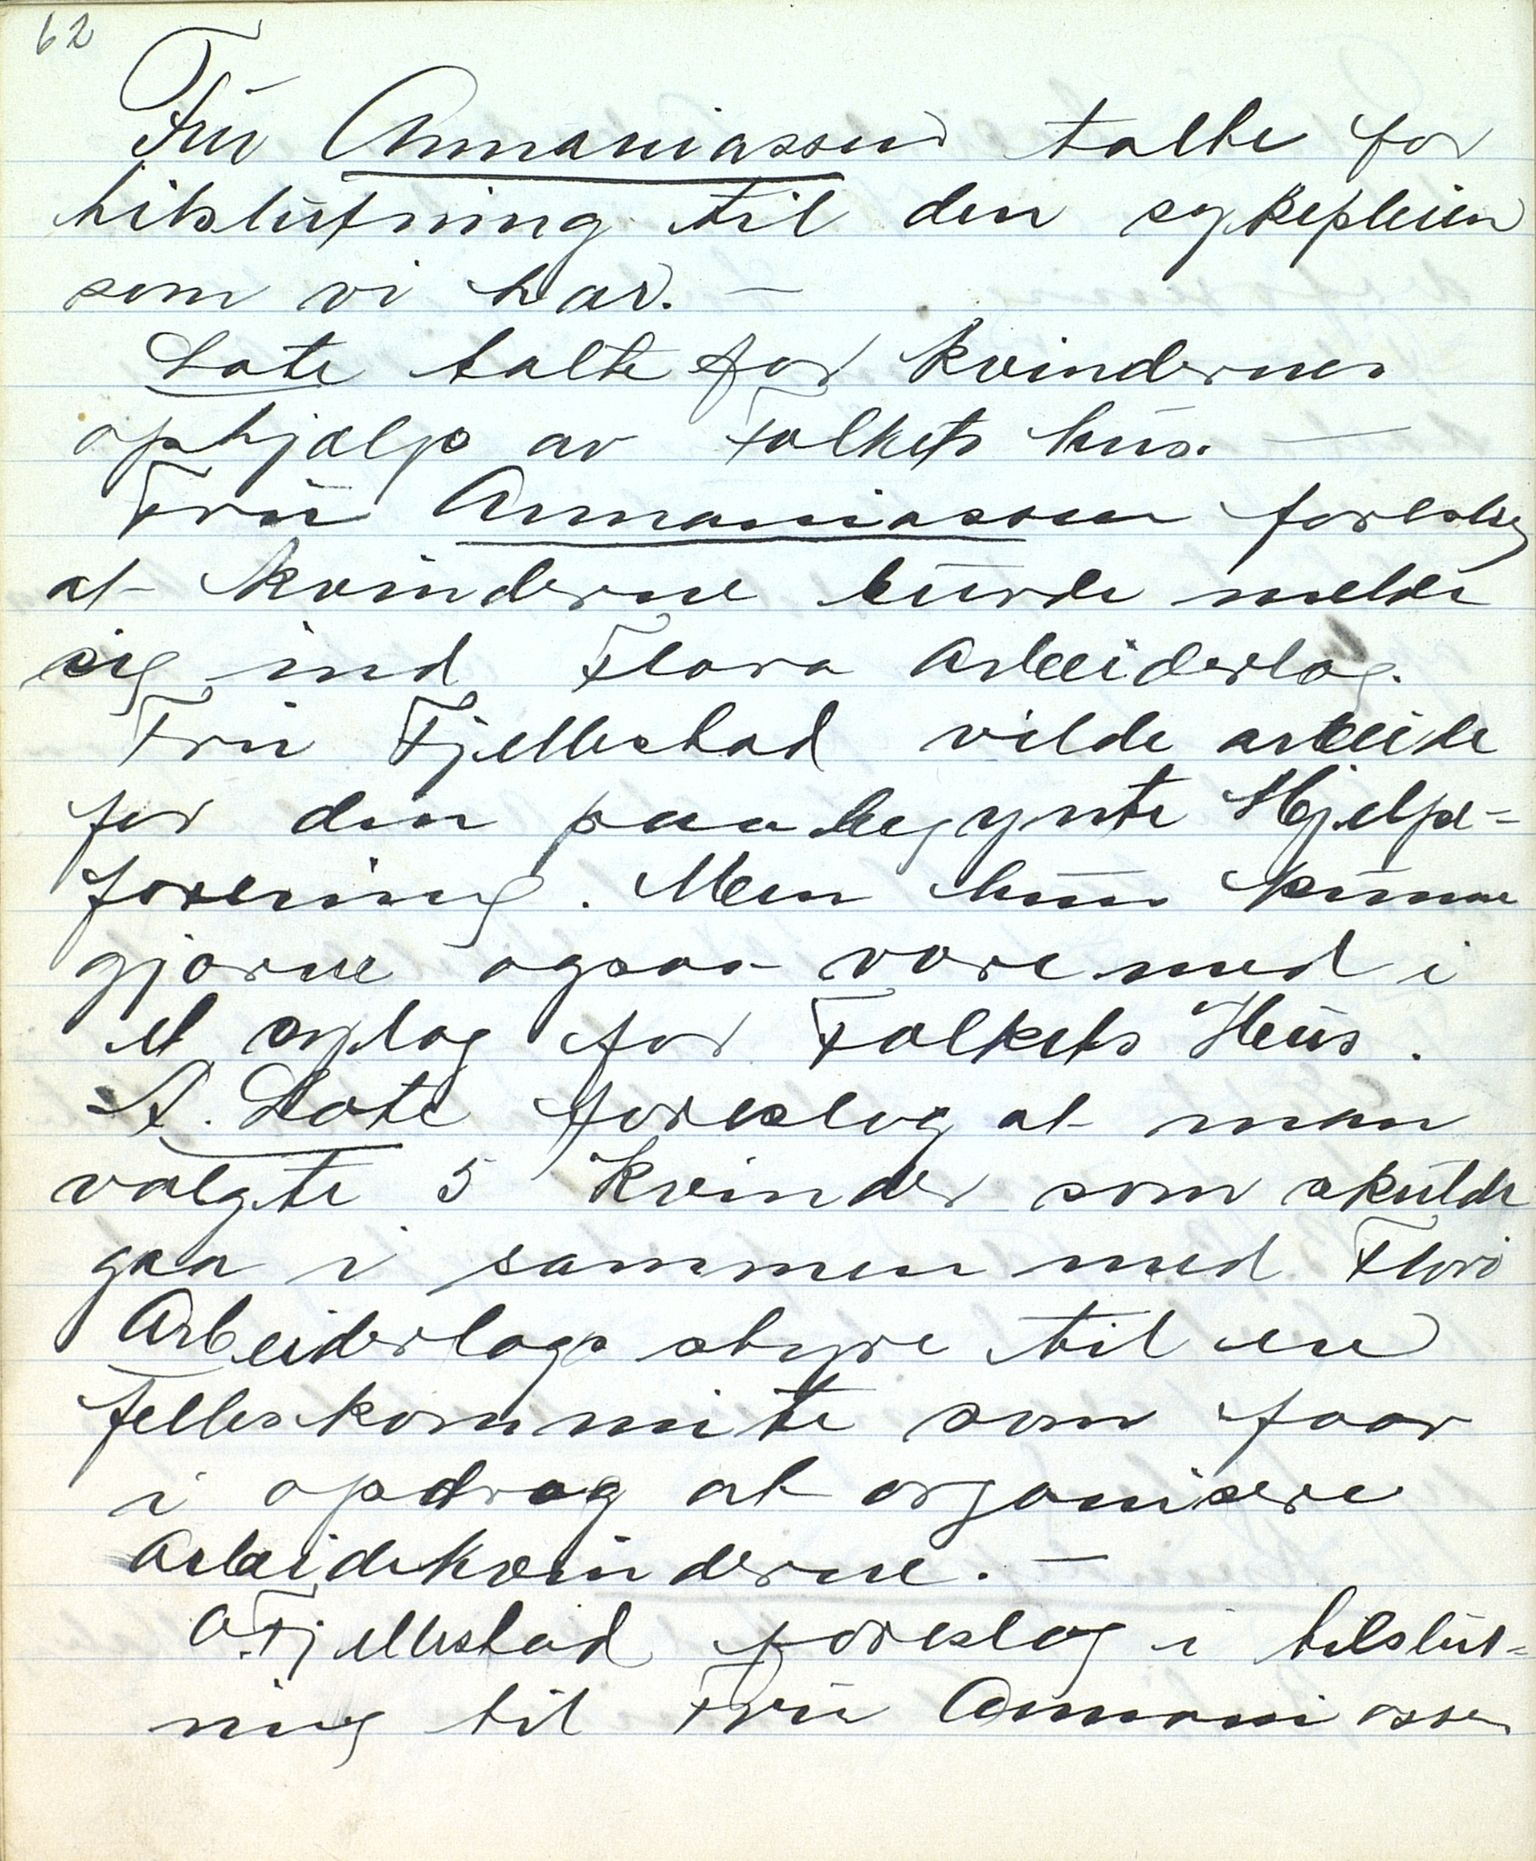 62
Fru Annaniassen talte for
tilslutning til den sykepleien
som vi har. —
Lote talte for kvindernes
ophjælp av Folkets hus. —
Fru Annaniassen foreslog
at kvinderne burde melde
sig ind Flora Arbeiderlag.
Fru Fjellestad vilde arbeide
for den paabegynte Hjelpe-
forening. Men hun kunne
gjærne ogsaa være med i
et sylag for Folkets Hus.
A. Lote foreslog at man
valgte 5 kvinder som skulde
gaa i sammen med Florø
Arbeiderlags styre til en
felleskommite som faar
i opdrag at organisere
Arbeidekvinderne. —
O. Fjellestad foreslog i tilslut-
ning til Fru Annaniassen